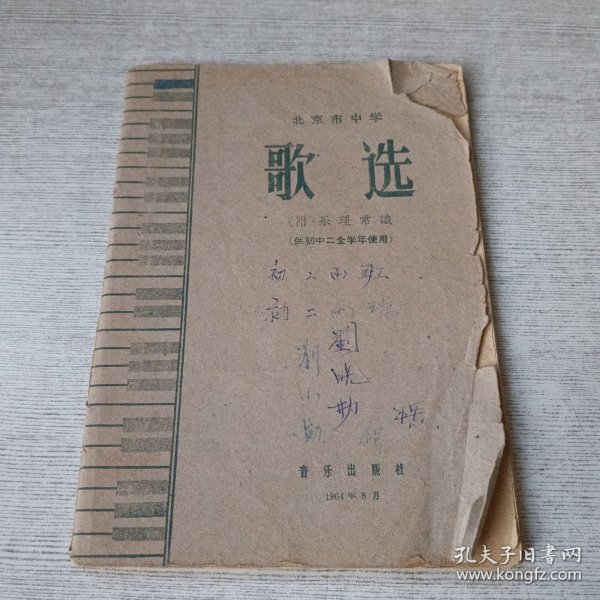 北京市中学
歌选
(附)乐理常识
(供初中二全学年使用)
初二
初二
劉
音乐出版社
1964年8月
孔夫子旧書网
www.kongfz.com